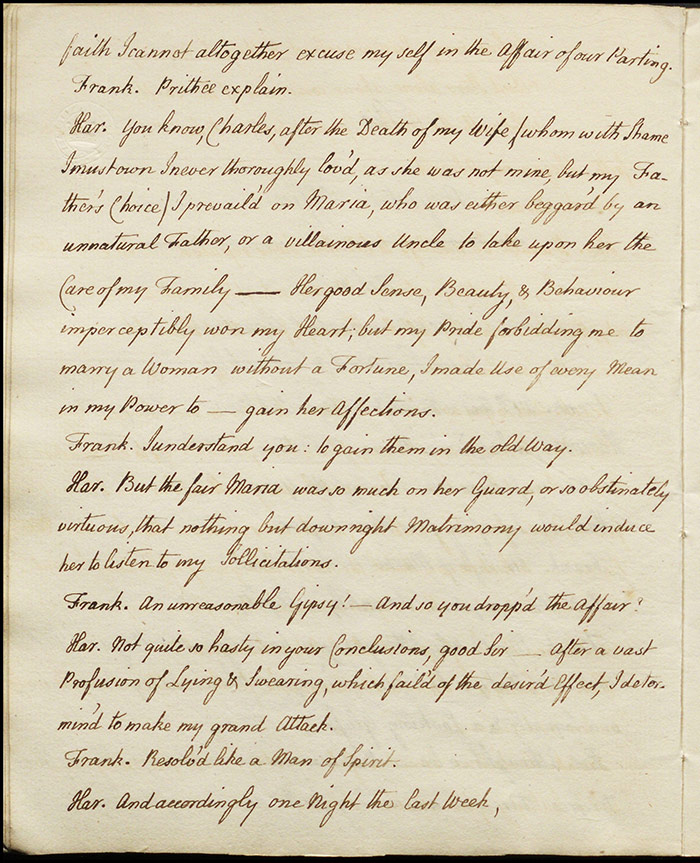 faith I cannot altogether excuse my self in the Affair of our Parting.
Frank. Prithee explain.
Har. You know, Charles, after the Death of my Wife (whom with Shame
I must own I never thoroughly lov'd, as she was not mine, but my Fa-
ther's Choice) I prevail'd on Maria, who was either beggar'd by an
unnatural Father, or a villainous Uncle to take upon her the
Care of my Family —— Her good Sense, Beauty, & Behaviour
imperceptibly won my Heart; but my Pride forbidding me to
marry a Woman without a Fortune, I made Use of every Mean
in my Power to — gain her Affections.
Frank. I understand you: to gain them in the old Way.
Har. But the fair Maria was so much on her Guard, or so obstinately
virtuous, that nothing but downright Matrimony would induce
her to listen to my Sollicitations.
Frank. An unreasonable Gipsy! — And so you dropp'd the Affair?
Har. Not quite so hasty in your Conclusions, good Sir — After a vast
Profusion of Lying & Swearing, which fail'd of the desir'd Effect, I deter-
min'd to make my grand Attack.
Frank. Resolv'd like a Man of Spirit.
Har. And accordingly one Night the last Week,